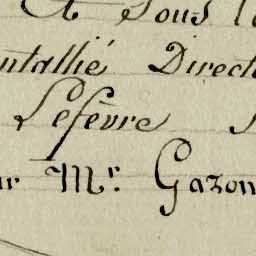 Et sous l
ntallié Direct
Lefèvre
ur Mr. Gazon